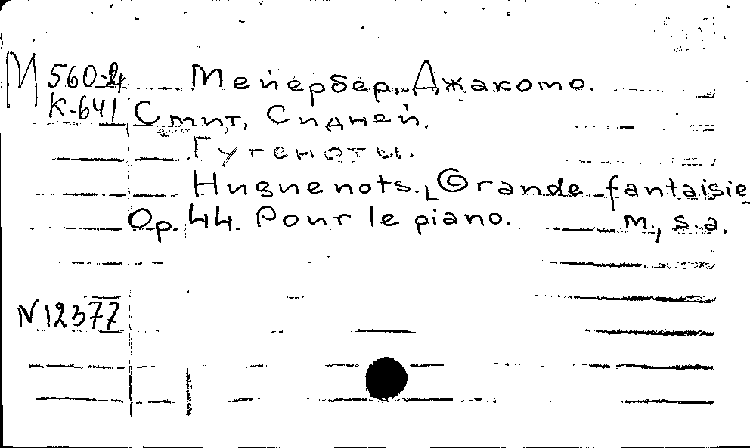 М 560-4 Мейербер, Джакомо.
К-641 Смит, Сидней.
Гугеноты.
Huguenots. Grande fantaisie
Op. 44. Pour le piano. M., s.a.
N 12377